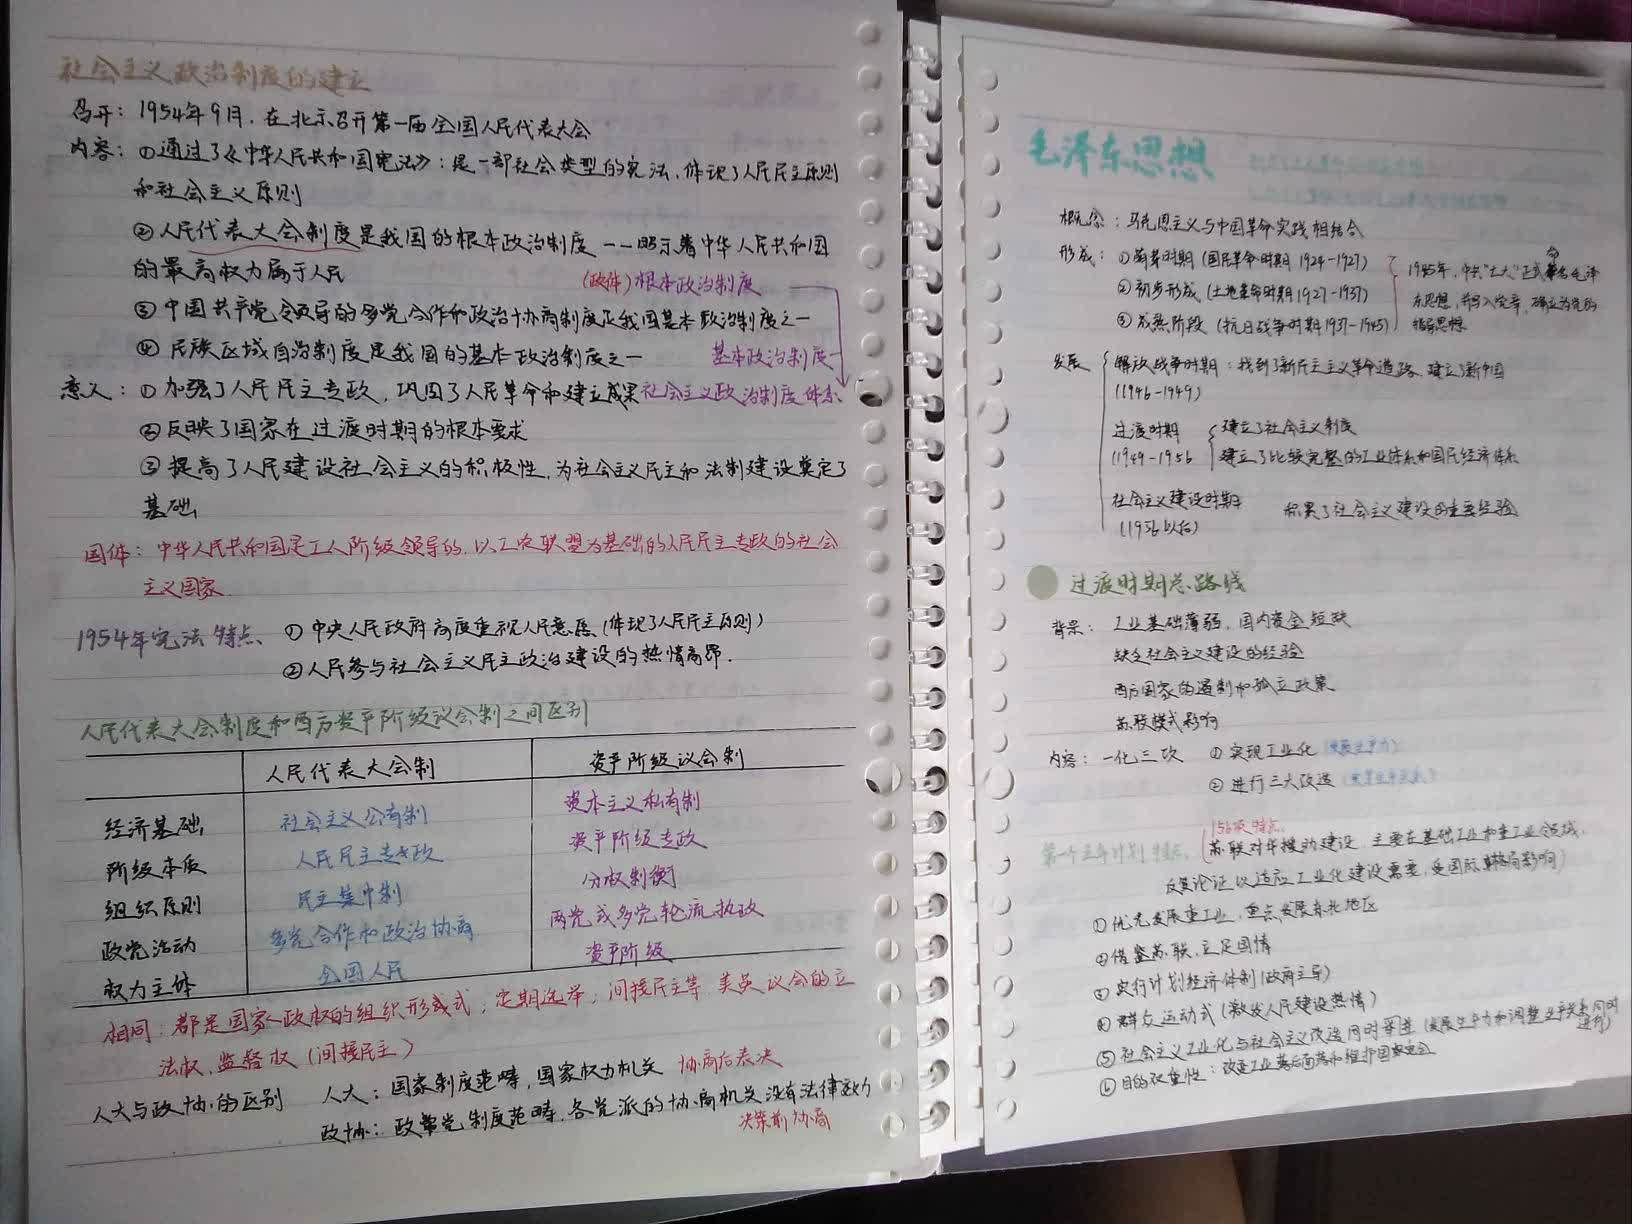 社会主义政治制度的建立
召开：1954年9月，在北京召开第一届全国人民代表大会
内容：①通过了《中华人民共和国宪法》：是一部社会类型的宪法，体现了人民民主原则
和社会主义原则
②人民代表大会制度是我国的根本政治制度——昭示着中华人民共和国
的最高权力属于人民
(政体)根本政治制度
③中国共产党领导的多党合作和政治协商制度是我国基本政治制度之一
④民族区域自治制度是我国的基本政治制度之一
基本政治制度
意义：①加强了人民民主专政，巩固了人民革命和建立成果
社会主义政治制度体系
②反映了国家在过渡时期的根本要求
③提高了人民建设社会主义的积极性，为社会主义民主和法制建设奠定了
基础
国体：中华人民共和国是工人阶级领导的，以工农联盟为基础的人民民主专政的社会
主义国家
1954年宪法特点 ①中央人民政府高度重视人民意愿(体现了人民民主原则)
②人民参与社会主义民主政治建设的热情高昂.
人民代表大会制度和西方资产阶级议会制之间区别
人民代表大会制 资产阶级议会制
经济基础 社会主义公有制 资本主义私有制
阶级本质 人民民主专政 资产阶级专政
组织原则 民主集中制 分权制衡
政党活动 多党合作和政治协商 两党或多党轮流执政
权力主体 全国人民 资产阶级
相同：都是国家政权的组织形式，定期选举，间接民主等，美英议会的立
法权，监督权(间接民主)
人大与政协的区别 人大：国家制度范畴，国家权力机关 协商后表决
政协：政党制度范畴，各党派的协商机关没有法律效力
决策前协商
毛泽东思想
概念：马克思主义与中国革命实践相结合
形成：①萌芽时期(国民革命时期1924-1927)
②初步形成(土地革命时期1927-1937)
③成熟阶段(抗日战争时期1937-1945)
1945年，中共"七大"正式命名毛泽
东思想，并写入党章，确立为党的
指导思想
发展 解放战争时期：找到了新民主主义革命道路，建立了新中国
(1946-1949)
过渡时期 建立了社会主义制度
(1949-1956 建立了比较完整的工业体系和国民经济体系
社会主义建设时期 积累了社会主义建设的重要经验
(1956以后)
过渡时期总路线
背景：工业基础薄弱，国内资金短缺
缺乏社会主义建设的经验
西方国家的遏制和孤立政策
苏联模式影响
内容：一化三改 ①实现工业化(发展生产力)
②进行三大改造
156项特点
第一个五年计划特点 苏联对华援助建设，主要在基础工业和重工业领域，
反复论证以适应工业化建设需要，受国际格局影响)
①优先发展重工业，重点发展东北地区
②借鉴苏联，立足国情
③实行计划经济体制(政府主导)
④群众运动式(激发人民建设热情)
⑤社会主义工业化与社会主义改造同时并进(发展生产力和调整生产关系同时
进行)
⑥目的双重性：改变工业落后面貌和维护国家安全